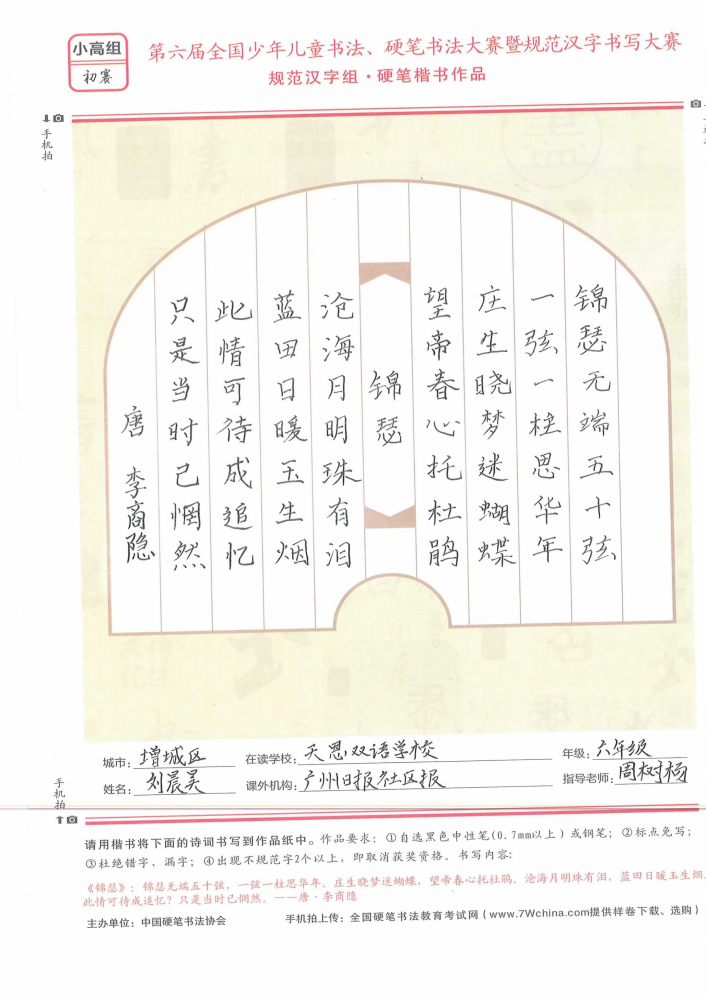 小高组
初赛
第六届全国少年儿童书法、硬笔书法大赛暨规范汉字书写大赛
规范汉字组·硬笔楷书作品
手机拍
锦瑟无端五十弦
一弦一柱思华年
庄生晓梦迷蝴蝶
望帝春心托杜鹃
锦瑟
沧海月明珠有泪
蓝田日暖玉生烟
此情可待成追忆
只是当时已惘然
唐 李商隐
城市：增城区 在读学校：天恩双语学校 年级：六年级
姓名：刘晨昊 课外机构：广州日报社区报 指导老师：周树杨
手机拍
请用楷书将下面的诗词书写到作品纸中。作品要求：①自选黑色中性笔(0.7mm以上）或钢笔；②标点免写；
③杜绝错字、漏字；④出现不规范字2个以上，即取消获奖资格。书写内容：
《锦瑟》：锦瑟无端五十弦，一弦一柱思华年。庄生晓梦迷蝴蝶，望帝春心托杜鹃。沧海月明珠有泪，蓝田日暖玉生烟。
此情可待成追忆？只是当时已惘然。——唐·李商隐
主办单位：中国硬笔书法协会 手机拍上传：全国硬笔书法教育考试网（www.7Wchina.com提供样卷下载、选购）